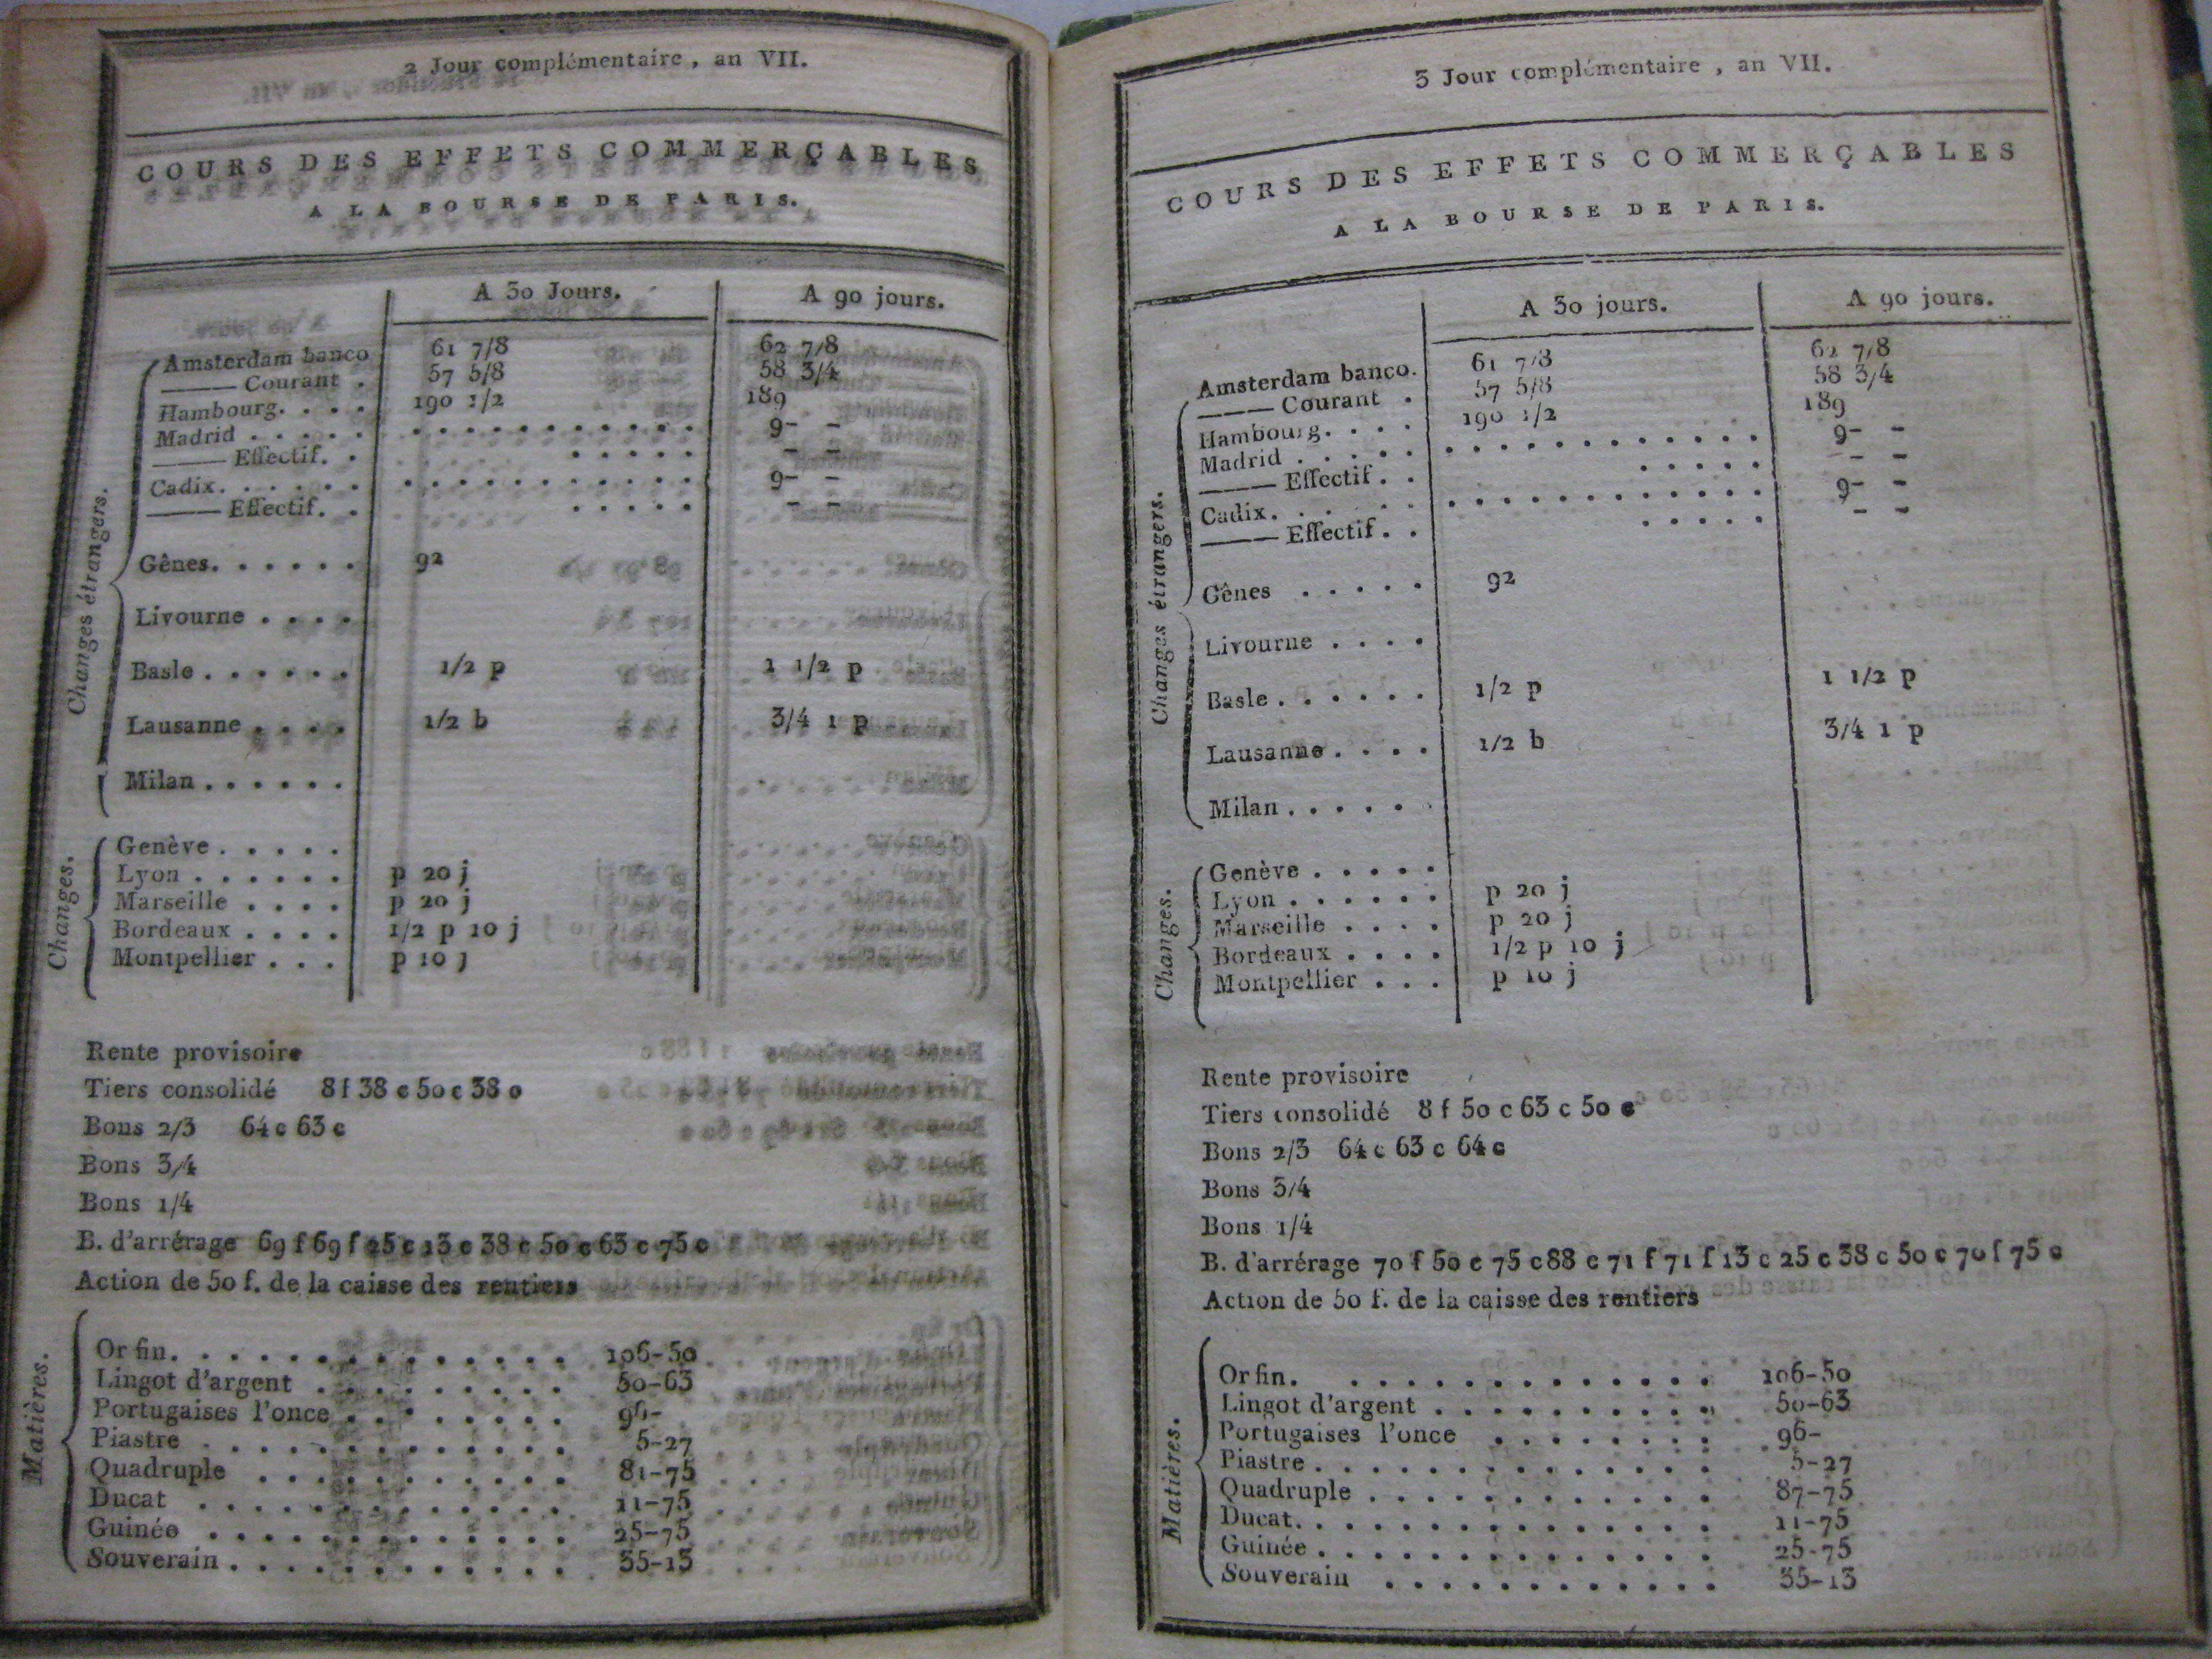 2 Jour complémentaire, an VII.
COURS DES EFFETS COMMERÇABLES
A LA BOURSE DE PARIS.
A 30 Jours. A 90 jours.
Changes étrangers.
Amsterdam banco 61 7/8 62 7/8
——— Courant . 57 5/8 58 3/4
Hambourg. . . . 190 1/2 189
Madrid . . . . . . . . . . . . . . . . . 9- -
——— Effectif. . . . . . . - -
Cadix. . . . . . . . . . . . . . . . . . 9- -
——— Effectif. . . . . . . - -
Gênes. . . . . . 92
Livourne . . . .
Basle . . . . . . 1/2 p 1 1/2 p
Lausanne . . . . 1/2 b 3/4 1 p
Milan . . . . . .
Changes.
Genève . . . . .
Lyon . . . . . . p 20 j
Marseille . . . . p 20 j
Bordeaux . . . . 1/2 p 10 j
Montpellier . . . p 10 j
Rente provisoire
Tiers consolidé 8 f 38 c 50 c 38 c
Bons 2/3 64 c 63 c
Bons 3/4
Bons 1/4
B. d'arrérage 69 f 69 f 25 c 13 c 38 c 50 c 63 c 75 c
Action de 50 f. de la caisse des rentiers
Matières.
Or fin. . . . . . . . . . . . . . 106-50
Lingot d'argent . . . . . . . . . . 50-63
Portugaises l'once . . . . . . . . 96-
Piastre . . . . . . . . . . . . . 5-27
Quadruple . . . . . . . . . . . 81-75
Ducat . . . . . . . . . . . . . 11-75
Guinée . . . . . . . . . . . . . 25-75
Souverain . . . . . . . . . . . . . 35-13
3 Jour complémentaire, an VII.
COURS DES EFFETS COMMERÇABLES
A LA BOURSE DE PARIS.
A 30 jours. A 90 jours.
Changes étrangers.
Amsterdam banco. 61 7/8 62 7/8
——— Courant . 57 5/8 58 3/4
Hambourg. . . . 190 1/2 189
Madrid . . . . . . . . . . . . . . . . . 9- -
——— Effectif . . . . . . . - -
Cadix. . . . . . . . . . . . . . . . . . 9- -
——— Effectif . . . . . . . - -
Gênes . . . . . 92
Livourne . . . .
Basle . . . . . . 1/2 p 1 1/2 p
Lausanne . . . . 1/2 b 3/4 1 p
Milan . . . . . .
Changes.
Genève . . . . .
Lyon . . . . . . p 20 j
Marseille . . . . p 20 j
Bordeaux . . . . 1/2 p 10 j
Montpellier . . . p 10 j
Rente provisoire
Tiers consolidé 8 f 50 c 63 c 50 c
Bons 2/3 64 c 63 c 64 c
Bons 3/4
Bons 1/4
B. d'arrérage 70 f 50 c 75 c 88 c 71 f 71 f 13 c 25 c 38 c 50 c 70 f 75 c
Action de 50 f. de la caisse des rentiers
Matières.
Or fin. . . . . . . . . . . . . . 106-50
Lingot d'argent . . . . . . . . . . 50-63
Portugaises l'once . . . . . . . . 96-
Piastre . . . . . . . . . . . . . 5-27
Quadruple . . . . . . . . . . . . 87-75
Ducat. . . . . . . . . . . . . . 11-75
Guinée . . . . . . . . . . . . . 25-75
Souverain . . . . . . . . . . . . 35-13